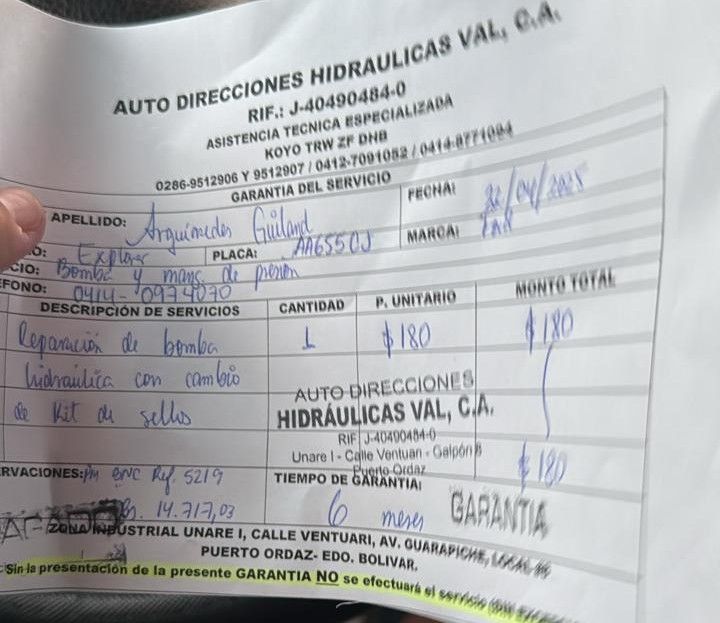 AUTO DIRECCIONES HIDRAULICAS VAL, C.A.
RIF.: J-40490484-0
ASISTENCIA TECNICA ESPECIALIZADA
KOYO TRW ZF DHB
0286-9512906 Y 9512907 / 0412-7091052 / 0414-8771094
GARANTIA DEL SERVICIO
APELLIDO: Arquimedes Guiland FECHA: 22/04/2025
O: Explorer PLACA: AA655OJ MARCA:
CIO: Bomba y mang de presion
FONO: 0414-0974070
DESCRIPCIÓN DE SERVICIOS CANTIDAD P. UNITARIO MONTO TOTAL
Reparación de bomba 1 $180 $180
hidraúlica con cambio
de Kit de sellos
AUTO DIRECCIONES
HIDRÁULICAS VAL, C.A.
RIF J-40490484-0
Unare I - Calle Ventuari - Galpón 8
Puerto Ordaz
$180
RVACIONES: PM BNC Ref. 5219 TIEMPO DE GARANTIA:
Bs. 14.717,03 6 meses GARANTIA
ZONA INDUSTRIAL UNARE I, CALLE VENTUARI, AV. GUARAPICHE, LOCAL
PUERTO ORDAZ- EDO. BOLIVAR.
Sin la presentación de la presente GARANTIA NO se efectuará el servicio